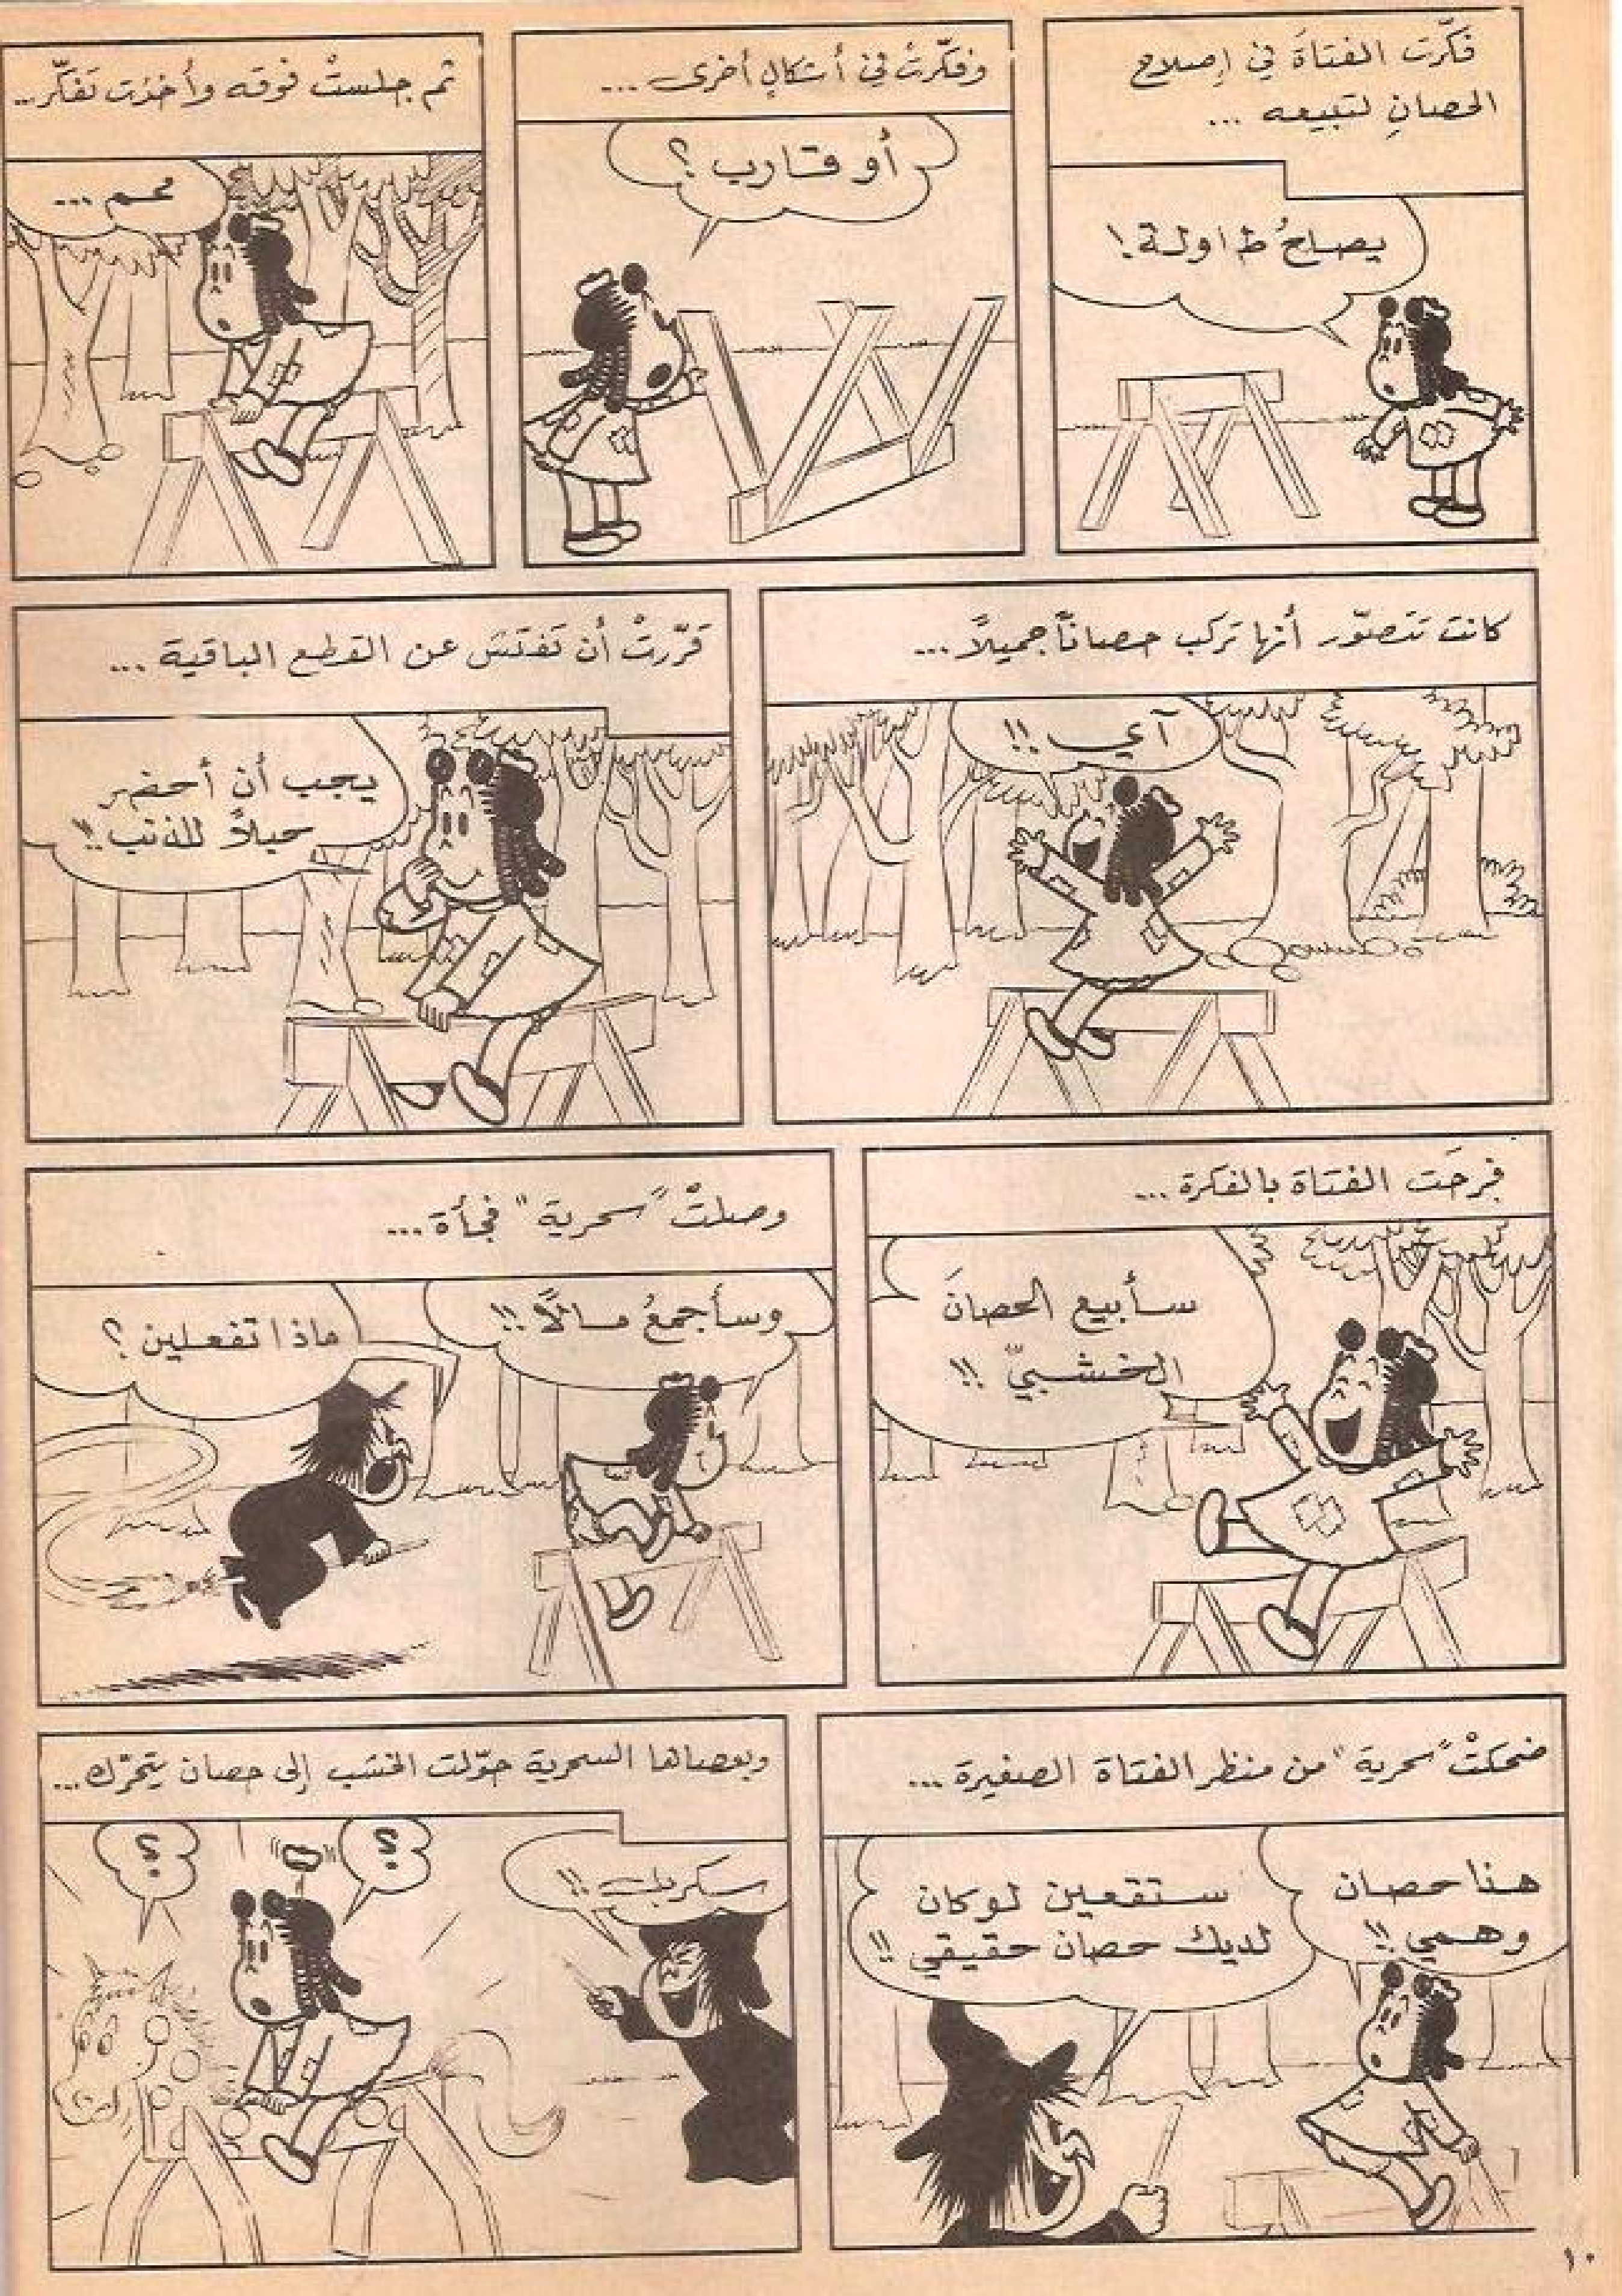 فكّرت الفتاة في إصلاح
الحصانِ لتبيعه ...
يصلحُ طاولة !
وفكّرتْ في أشكالٍ أخرى ...
أو قارب ؟
ثم جلستْ فوقه وأخذت تفكّر ...
همم ...
كانت تتصوّر أنها تركب حصاناً جميلاً ...
آي !!
قرّرتْ أن تفتش عن القطع الباقية ...
يجب أن أحضر
حبلاً للذنب !!
فرحَت الفتاة بالفكرة ...
سأبيع الحصانَ
الخشبيّ !!
وصلتْ "سحرية" فجأة ...
وسأجمعُ مالاً !!
ماذا تفعلين ؟
ضحكتْ "سحرية" من منظر الفتاة الصغيرة ...
هذا حصان
وهمي !!
ستقعين لو كان
لديك حصان حقيقي !!
وبعصاها السحرية حوّلت الخشب إلى حصان يتحرّك ...
سكربك !!
؟
؟
١٠